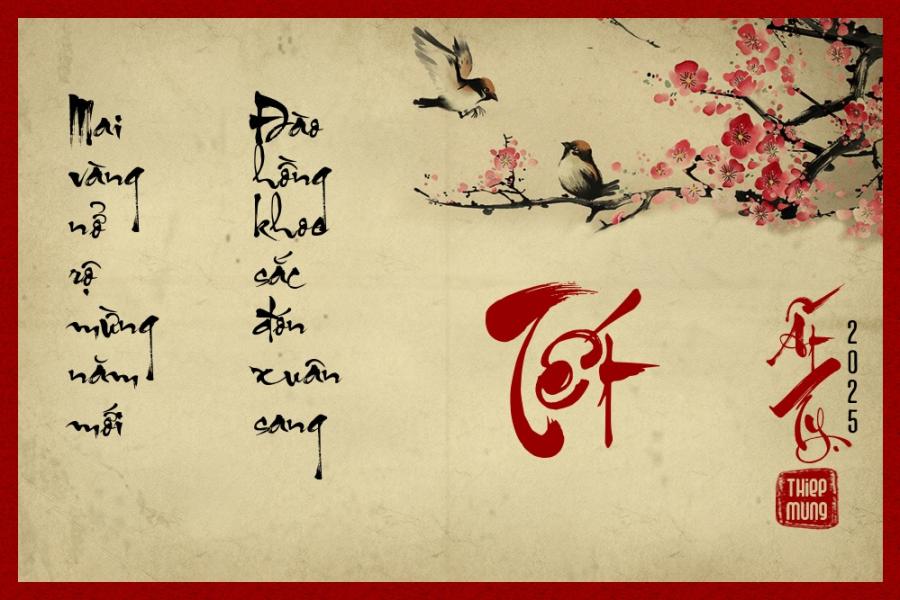 Mai
vàng
nở
rộ
mừng
năm
mới
Đào
hồng
khoe
sắc
đón
xuân
sang
Tết
Ất
Tỵ
2025
THiệP
mừng